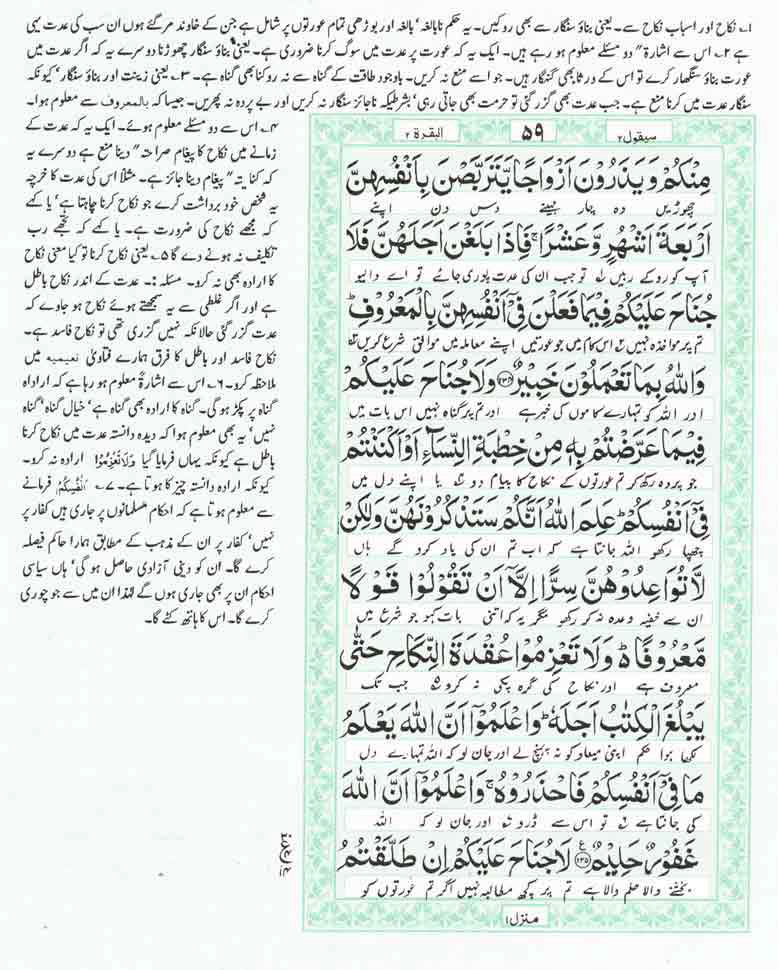 ۱۔ نکاح اور اسباب نکاح سے۔ یعنی بناؤ سنگار سے بھی روکیں۔ یہ حکم نابالغہ‘ بالغہ اور بوڑھی تمام عورتوں پر شامل ہے جن کے خاوند مر گئے ہوں ان سب کی عدت یہی
ہے ۲۔ اس سے اشارۃ" دو مسئلے معلوم ہو رہے ہیں۔ ایک یہ کہ عورت پر عدت میں سوگ کرنا ضروری ہے۔ یعنی بناؤ سنگار چھوڑنا دوسرے یہ کہ اگر عدت میں
عورت بناؤ سنگھار کرے تو اس کے ورثا بھی گنہگار ہیں۔ جو اسے منع نہ کریں۔ باوجود طاقت کے گناہ سے نہ روکنا بھی گناہ ہے۔ ۳۔ یعنی زینت اور بناؤ سنگار‘ کیونکہ
سنگار عدت میں کرنا منع ہے۔ جب عدت بھی گزر گئی تو حرمت بھی جاتی رہی‘ بشرطیکہ ناجائز سنگار نہ کریں اور بے پردہ نہ پھریں۔ جیسا کہ بالمعروف سے معلوم ہوا۔
۴۔ اس سے دو مسئلے معلوم ہوئے۔ ایک یہ کہ عدت کے
زمانے میں نکاح کا پیغام صراحتہ" دینا منع ہے دوسرے یہ
کہ کنایتہ" پیغام دینا جائز ہے۔ مثلاً اس کی عدت کا خرچہ
یہ شخص خود برداشت کرے جو نکاح کرنا چاہتا ہے‘ یا کہے
کہ مجھے نکاح کی ضرورت ہے۔ یا کہے کہ تجھے رب
تکلیف نہ ہونے دے گا ۵۔ یعنی نکاح کرنا تو کیا معنی نکاح
کا ارادہ بھی نہ کرو۔ مسئلہ :۔ عدت کے اندر نکاح باطل
ہے اور اگر غلطی سے یہ سمجھتے ہوئے نکاح ہو جاوے کہ
عدت گزر گئی حالانکہ نہیں گزری تھی تو نکاح فاسد ہے۔
نکاح فاسد اور باطل کا فرق ہمارے فتاویٰ نعیمیہ میں
ملاحظہ کرو۔ ۶۔ اس سے اشارۃً معلوم ہو رہا ہے کہ ارادہ
گناہ پر پکڑ ہو گی۔ گناہ کا ارادہ بھی گناہ ہے‘ خیال گناہ‘ گناہ
نہیں‘ یہ بھی معلوم ہوا کہ دیدہ دانستہ عدت میں نکاح کرنا
باطل ہے کیونکہ یہاں فرمایا گیا وَلَا تَعْزِمُوْا ارادہ نہ کرو۔
کیونکہ ارادہ دانستہ چیز کا ہوتا ہے۔ ۷۔ اَنْفُسِكُمْ فرمانے
سے معلوم ہوتا ہے کہ احکام مسلمانوں پر جاری ہیں کفار پر
نہیں‘ کفار پر ان کے مذہب کے مطابق ہمارا حاکم فیصلہ
کرے گا۔ ان کو دینی آزادی حاصل ہو گی‘ ہاں سیاسی
احکام ان پر بھی جاری ہوں گے لہٰذا ان میں سے جو چوری
کرے گا۔ اس کا ہاتھ کٹے گا۔
سیقول۲ ۵۹ البقرۃ ۲
مِنْكُمْ وَيَذَرُوْنَ اَزْوَاجًا يَّتَرَبَّصْنَ بِاَنْفُسِهِنَّ
چھوڑیں وہ چار مہینے دس دن اپنے
اَرْبَعَةَ اَشْهُرٍ وَّعَشْرًا ۚ فَاِذَا بَلَغْنَ اَجَلَهُنَّ فَلَا
آپ کو روکے رہیں لہ تو جب ان کی عدت پوری ہو جائے تو اے والیو
جُنَاحَ عَلَيْكُمْ فِيْمَا فَعَلْنَ فِيْۤ اَنْفُسِهِنَّ بِالْمَعْرُوْفِ ؕ
تم پر مواخذہ نہیں اس کام میں جو عورتیں اپنے معاملہ میں موافق شرع کریں
وَاللّٰهُ بِمَا تَعْمَلُوْنَ خَبِيْرٌ ۲۳۴ وَلَا جُنَاحَ عَلَيْكُمْ
اور اللہ کو تمہارے کاموں کی خبر ہے اور تم پر گناہ نہیں اس بات میں
فِيْمَا عَرَّضْتُمْ بِهٖ مِنْ خِطْبَةِ النِّسَآءِ اَوْ اَكْنَنْتُمْ
جو پردہ رکھ کر تم عورتوں کے نکاح کا پیام دو یا اپنے دل میں
فِيْۤ اَنْفُسِكُمْ ؕ عَلِمَ اللّٰهُ اَنَّكُمْ سَتَذْكُرُوْنَهُنَّ وَلٰكِنْ
چھپا رکھو اللہ جانتا ہے کہ اب تم ان کی یاد کرو گے ہاں
لَّا تُوَاعِدُوْهُنَّ سِرًّا اِلَّاۤ اَنْ تَقُوْلُوْا قَوْلًا
ان سے خفیہ وعدہ نہ کر رکھو مگر یہ کہ اتنی بات کہو جو شرع میں
مَّعْرُوْفًا ؕ۬ وَلَا تَعْزِمُوْا عُقْدَةَ النِّكَاحِ حَتّٰى
معروف ہے اور نکاح کی گرہ پکی نہ کرو جب تک
يَبْلُغَ الْكِتٰبُ اَجَلَهٗ ؕ وَاعْلَمُوْۤا اَنَّ اللّٰهَ يَعْلَمُ
لکھا ہوا حکم اپنی میعاد کو نہ پہنچ لے اور جان لو کہ اللہ تمہارے دل
مَا فِيْۤ اَنْفُسِكُمْ فَاحْذَرُوْهُ ۚ وَاعْلَمُوْۤا اَنَّ اللّٰهَ
کی جانتا ہے تو اس سے ڈرو اور جان لو کہ اللہ
غَفُوْرٌ حَلِيْمٌ ۲۳۵ لَا جُنَاحَ عَلَيْكُمْ اِنْ طَلَّقْتُمُ
بخشنے والا حلم والا ہے تم پر کچھ مطالبہ نہیں اگر تم عورتوں کو
منزل۱